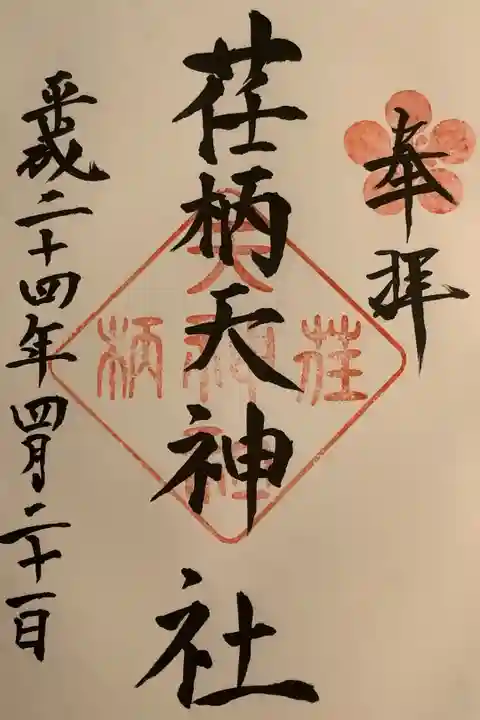 奉拝
荏柄天神社
平成二十四年四月二十一日
荏柄天神社